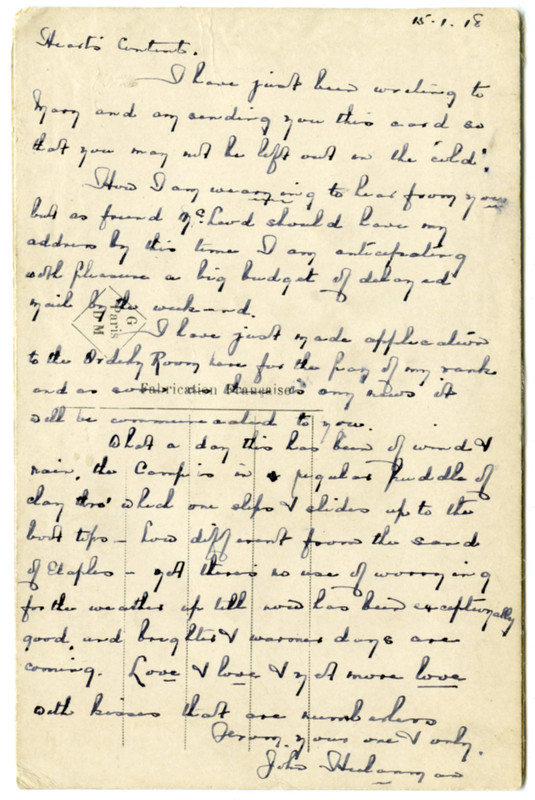 15.1.18
Heart's Content.
I have just been writing to
Mary and am sending you this card so
that you may not be left out in the 'cold'.
How I am wearying to hear from you
but as friend McLeod should have my
address by this time I am anticipating
with pleasure a big budget of delayed
mail by the week-end.
I have just made application
to the Orderly Room here for the pay of my rank
and as soon as there is any news it
will be communicated to you.
What a day this has been of wind &
rain, the Camp is in a regular puddle of
clay thro' which one slips & slides up to the
boot tops – how different from the sand
of Etaples – yet there's no use of worrying
for the weather up till now has been exceptionally
good, and brighter & warmer days are
coming. Love & love & yet more love
with kisses that are numberless
From your one & only.
John
G
Paris
D M
Fabrication Française